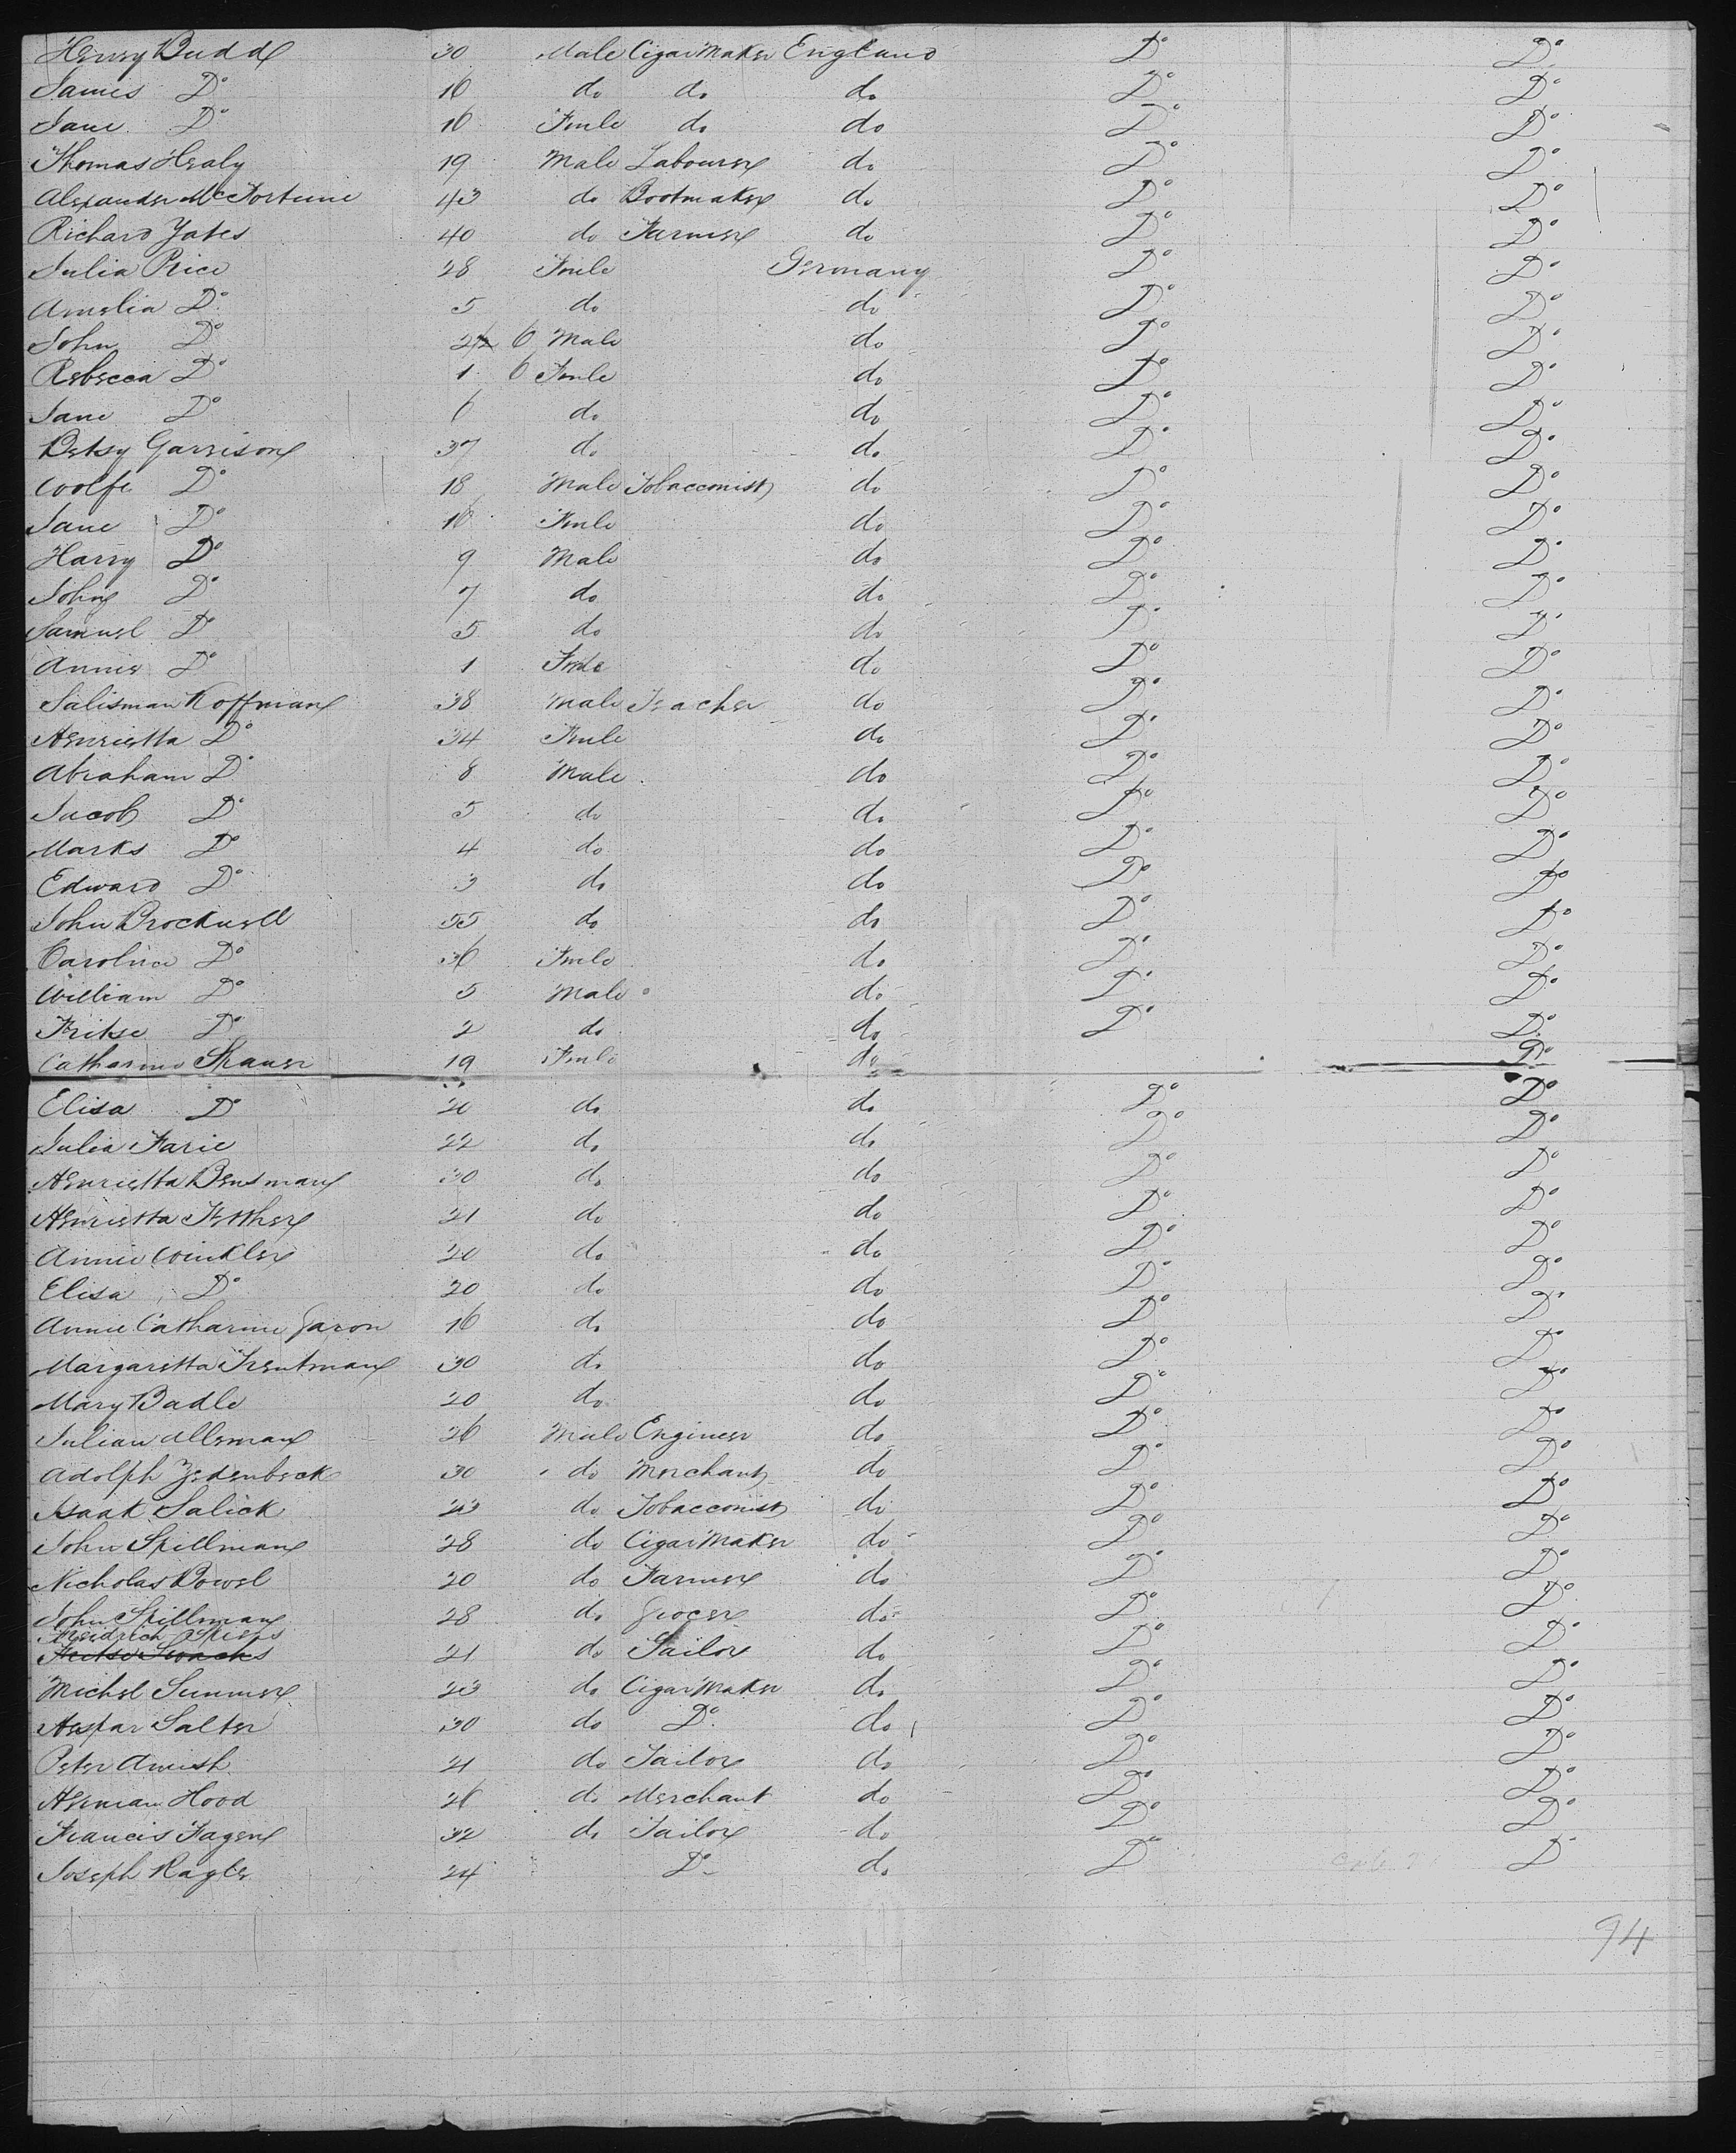 Henry Budd 30 Male Cigar Maker England Do Do
James Do 16 do do do Do Do
Jane Do 16 Fmle do do Do Do
Thomas Healy 19 Male Labourer do Do Do
Alexander McFortune 43 do Bootmaker do Do Do
Richard Yates 40 do Farmer do Do Do
Julia Price 28 Fmle Germany Do Do
Amelia Do 5 do do Do Do
John Do 2 6 Male do Do Do
Rebecca Do 1 6 Fmle do Do Do
Jane Do 6 do do Do Do
Betsy Garrison 37 do do Do Do
Woolfe Do 18 Male Tobacconist do Do Do
Jane Do 16 Fmle do Do Do
Harry Do 9 Male do Do Do
John Do 7 do do Do Do
Samuel Do 5 do do Do Do
Annie Do 1 Fmle do Do Do
Salisman Koffman 38 Male Teacher do Do Do
Henrietta Do 34 Fmle do Do Do
Abraham Do 8 Male do Do Do
Jacob Do 5 do do Do Do
Marks Do 4 do do Do Do
Edward Do 3 do do Do Do
John Brockwell 55 do do Do Do
Caroline Do 36 Fmle do Do Do
William Do 5 Male do Do Do
Fritse Do 2 do do Do Do
Catharine 19 Fmle do Do
Elisa Do 20 do do Do Do
Julia Farie 22 do do Do Do
Henrietta Bensman 30 do do Do Do
Henrietta 21 do do Do Do
Annie Winkler 20 do do Do Do
Elisa Do 20 do do Do Do
Annie Catharine Garon 16 do do Do Do
Margaretta Trentman 30 do do Do Do
Mary Badle 20 do do Do Do
Julian Alleman 26 Male Engineer do Do Do
Adolph Zedenbeck 30 do Merchant do Do Do
Isaak Salick 23 do Tobacconist do Do Do
John Spillman 28 do Cigar Maker do Do Do
Nicholas Bowel 20 do Farmer do Do Do
John Spillman 28 do Grocer do Do Do
Freidrich
21 do Tailor do Do Do
Michel Summer 23 do Cigar Maker do Do Do
Hespar Salter 30 do Do do Do Do
Peter Amish 21 do Tailor do Do Do
Herman Hood 26 do Merchant do Do Do
Francis Fagen 32 do Tailor do Do Do
Joseph Ragle 24 Do do Do Do
94